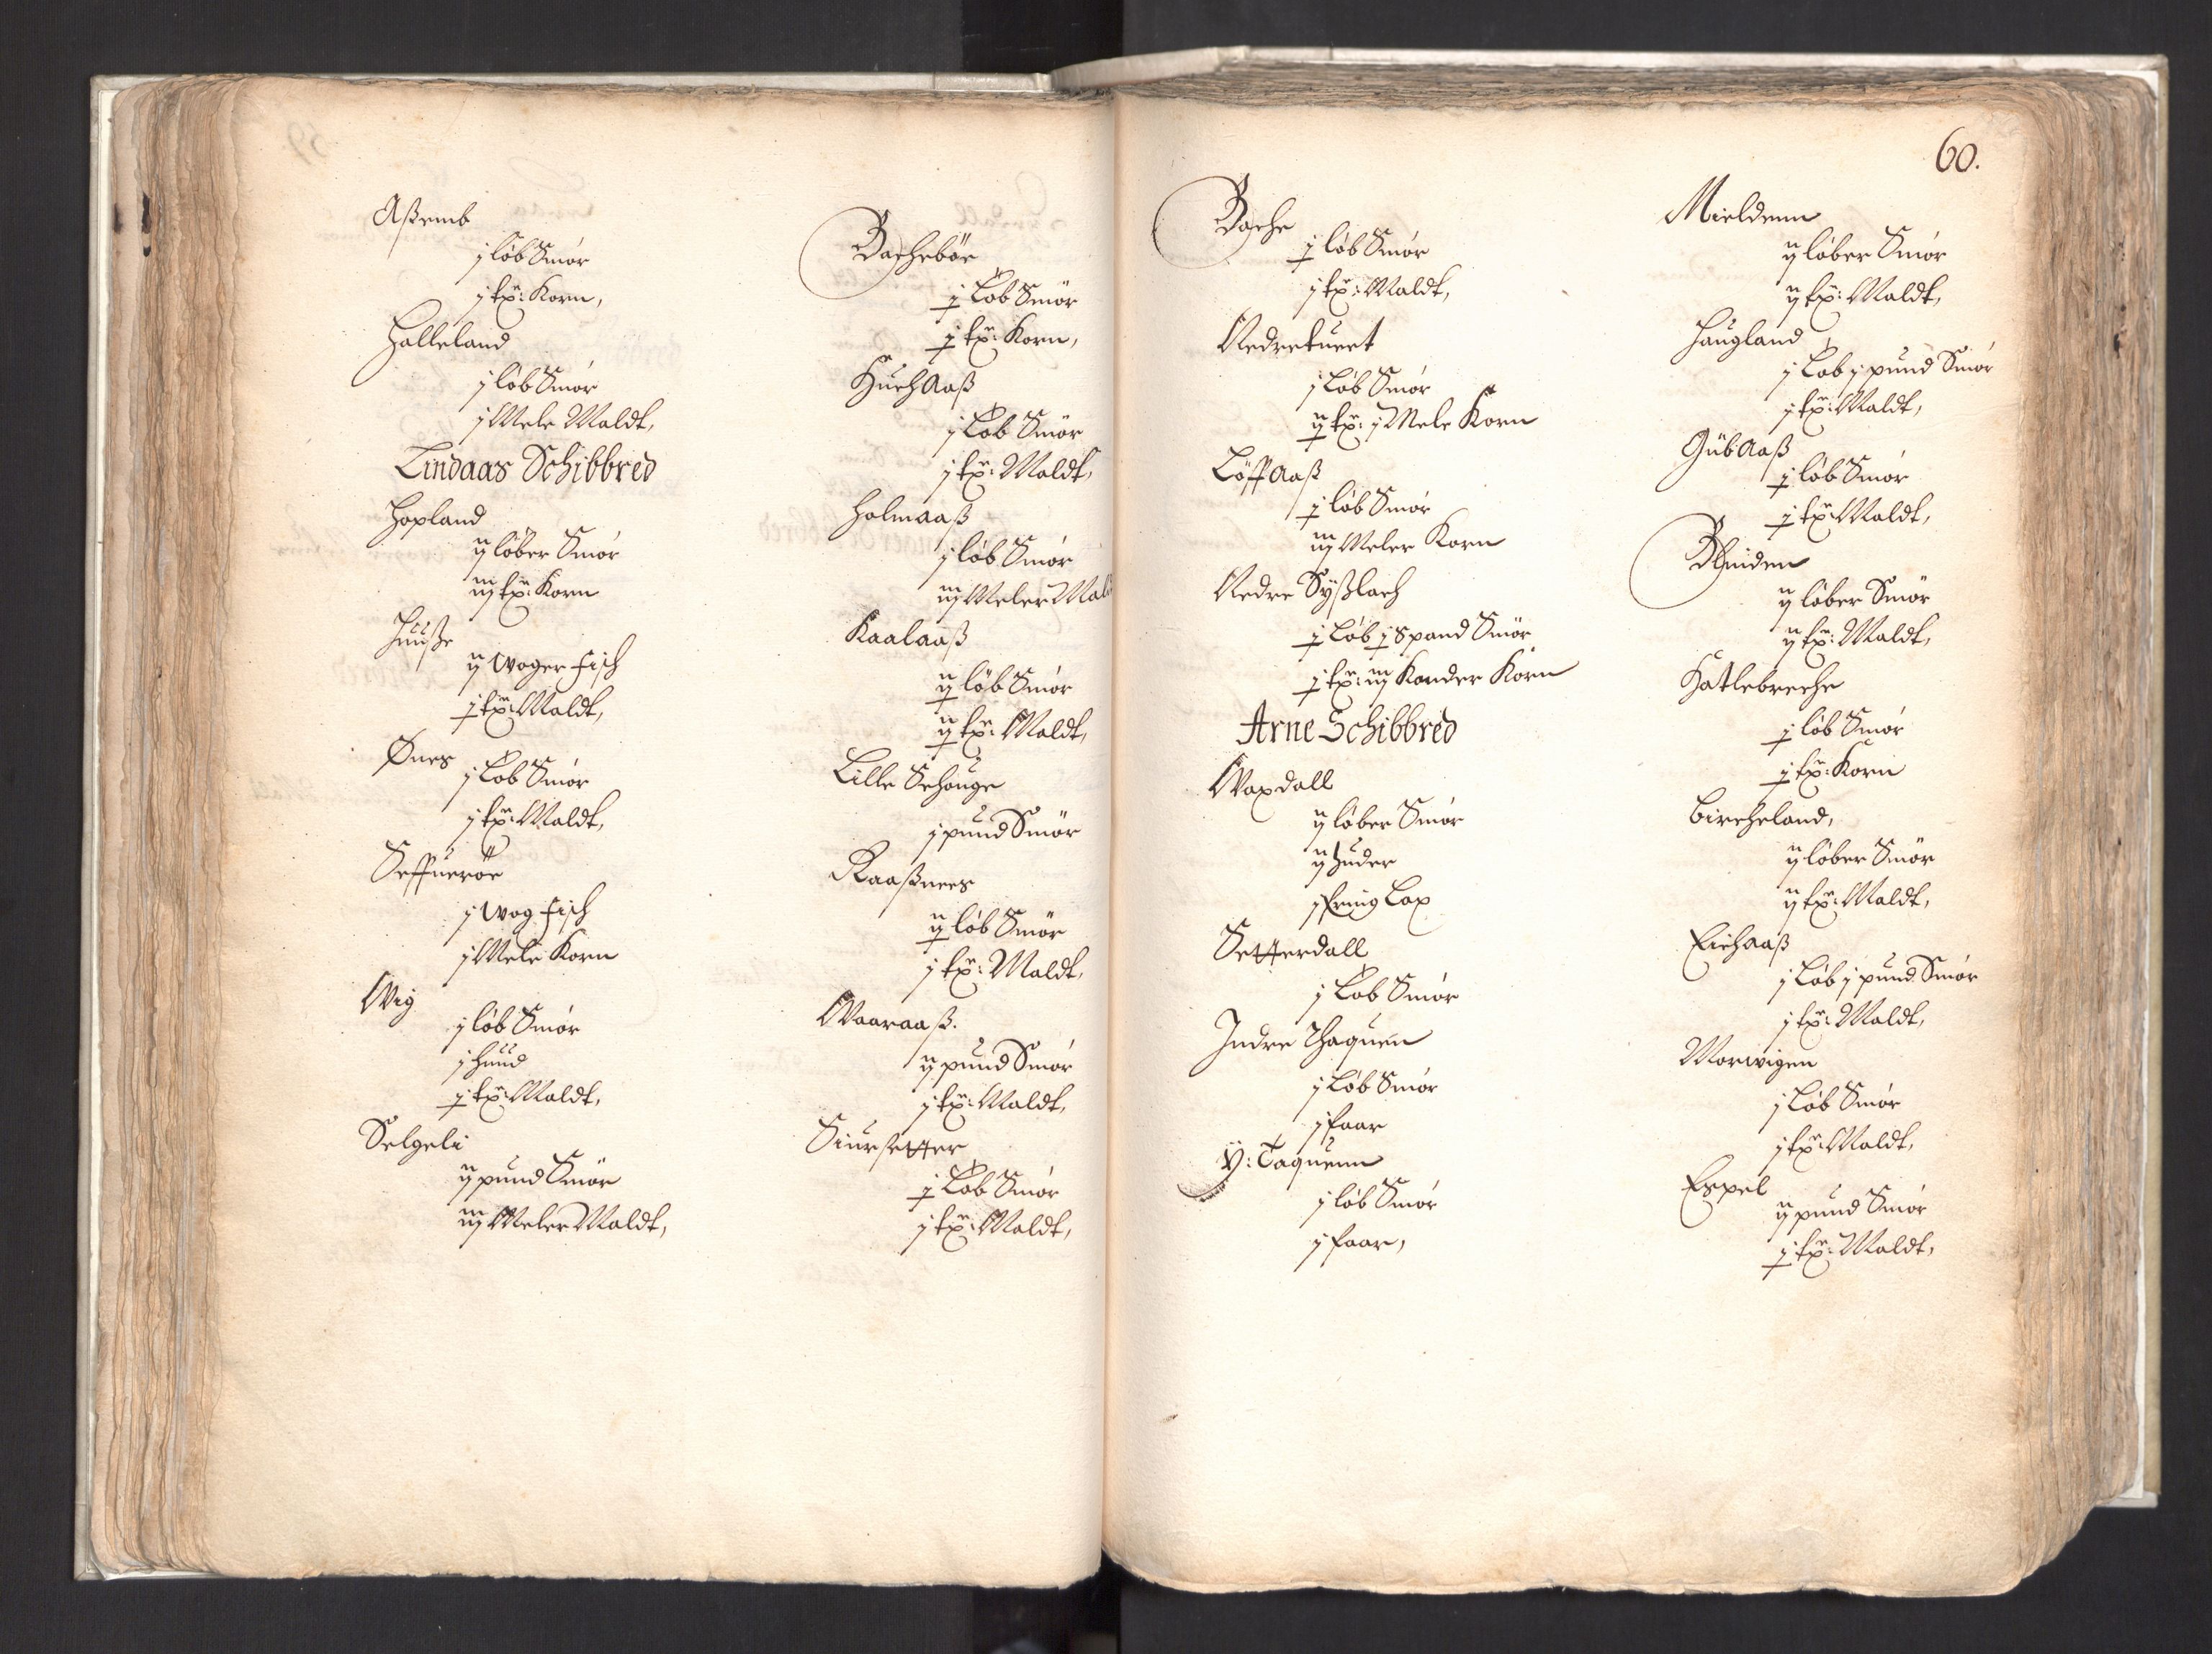 60.
Aßemb
j løb Smør
j tp: Korn,
Halleland
j løb Smør
j Mele Maldt,
Lindaas Schibbred
Hopland
ij løber Smør
iij tp: Korn
Huuße
ij Woger fisch
j tp: Maldt,
Ønes
j Løb Smør
j tp: Maldt,
Seffuerøe
j Wog fisch
j Mele Korn
Wig
j løb Smør
j Huud
j tp: Maldt,
Selgeli
ij pund Smør
iij Meler Maldt,
Bachebøe
j Løb Smør
j tp: Korn,
HuchAaß
j Løb Smør
j tp: Maldt,
Holmaaß
j løb Smør
iij Meler Mald
Kaalaaß
ij løb Smør
ij tp: Maldt,
Lille Schouge
j pund Smør
Raaßnees
ij løb Smør
j tp: Maldt,
Waaraaß.
ij pund Smør
j tp: Maldt,
Siursetter
j Løb Smør
j tp: Maldt,
Bache
j løb Smør
j tp: Maldt,
Nedretuect
j Løb Smør
ij tp: j Mele Korn
LøffAaß
j løb Smør
iij Meler Korn
Nedre Syßlach
j Løb j Spand Smør
j tp: iij Kander Korn
Arne Schibbred
Waxdall
ij løber Smør
ij huder
j fring Lax
Setterdall
j Løb Smør
Indre Thaquen
j Løb Smør
j faar
Y: Taquenn
j løb Smør
j faar,
Mieldenn
ij løber Smør
ij tp: Maldt,
Haugland
j Løb j pund Smør
j tp: Maldt,
GübAaß
j løb Smør
j tp: Maldt,
ij løber Smør
ij tp: Maldt,
Hatlebreche
j løb Smør
j tp: Korn
Bircheland,
ij løber Smør
ij tp: Maldt,
Eichaaß
j Løb j pund Smør
j tp: Maldt,
Morwigen
j Løb Smør
j tp: Maldt,
Espel
ij pund Smør
j tp: Maldt,